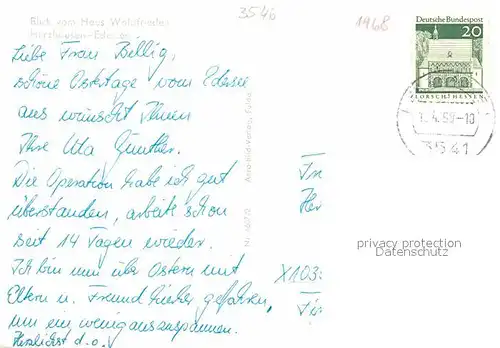 Blick vom Haus Waldfrieden
3546
1968
Deutsche Bundespost
20
LORSCH/HESSEN
.4.69-10
Liebe Frau Billig,
schöne Ostertage vom Edersee
aus wünscht Ihnen
Ihre Uta Günther.
Die Operation habe ich gut
überstanden, arbeite schon
seit 14 Tagen wieder.
Ich bin nun über Ostern mit
Eltern u. Freund hierher gefahren,
um ein wenig auszuspannen.
Herzlichst d.o.
privacy protection
Datenschutz
X103